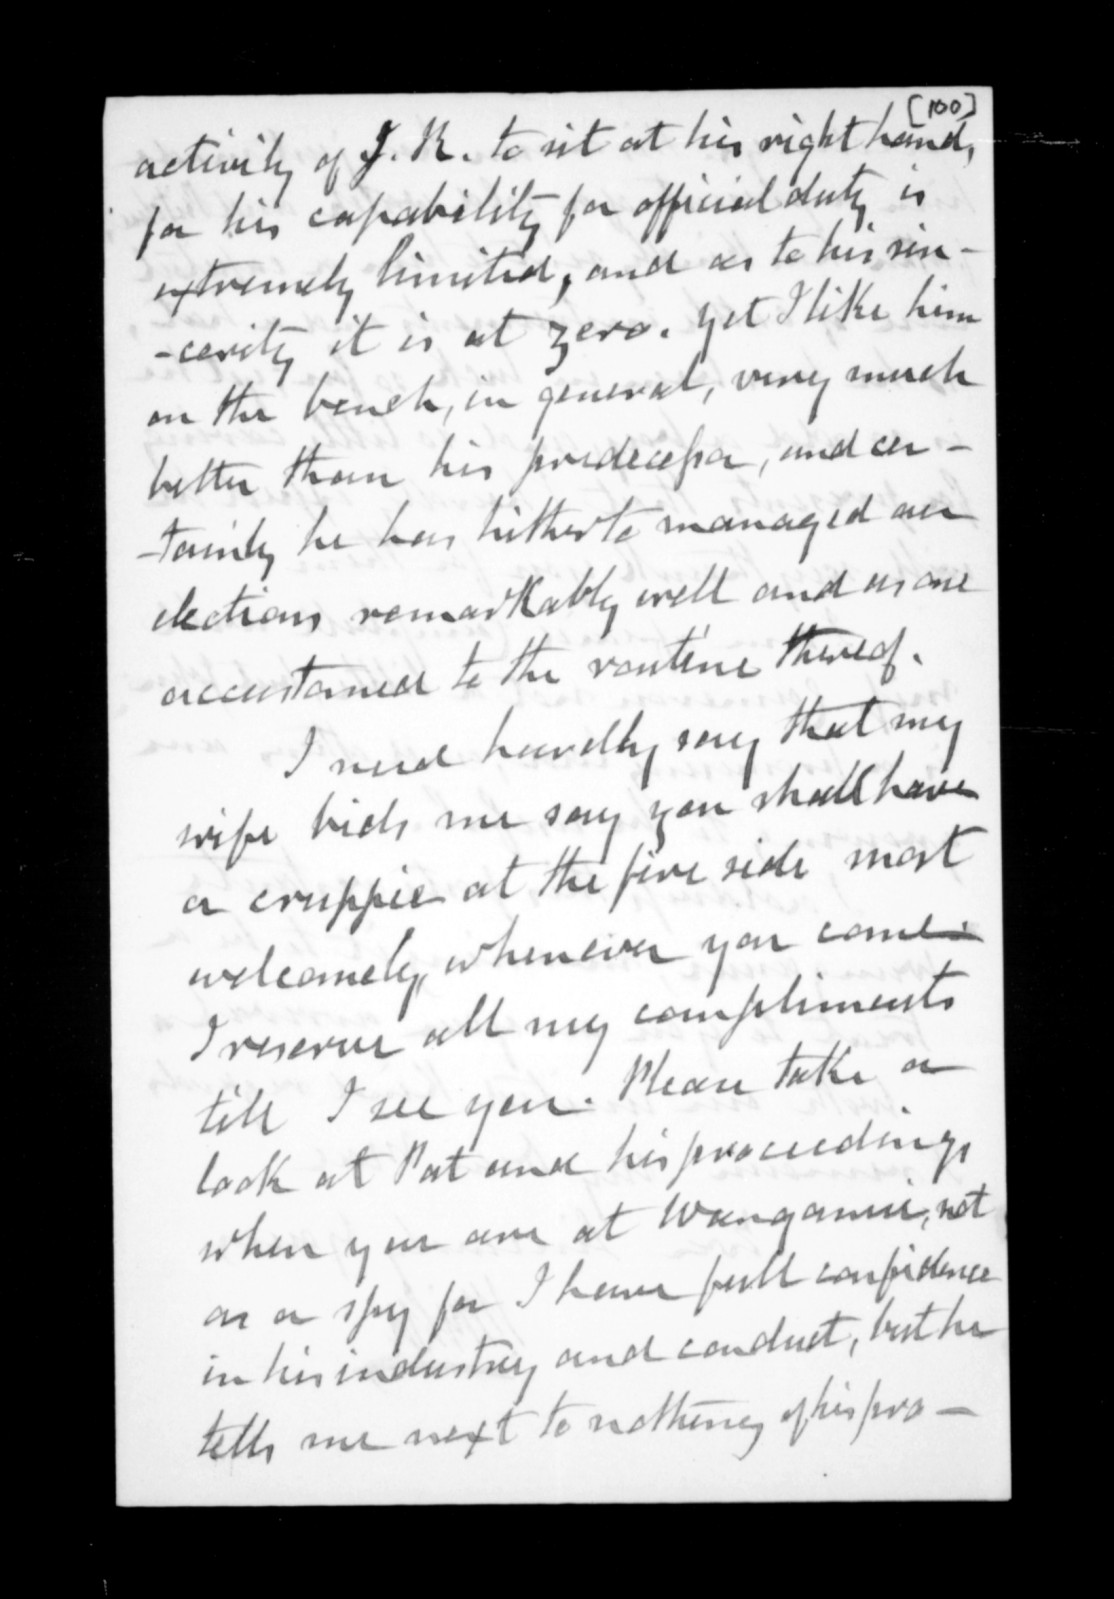 [100]
activity of J. R. to sit at his right hand,
for his capability for official duty is
extremely limited, and as to his sin-
-cerity it is at zero. yet I like him
on the bench, in general, very much
better than his predecessor, and cer-
-tainly he has hitherto managed our
elections remarkably well and as one
accustomed to the routine thereof.
I need hardly say that my
wife bids me say you shall have
a cruppie at the fire side most
welcomely, whenever you come.
I reserve all my compliments
till I see you. Please take a
look at Pat and his proceedings
when you are at Wanganui, not
as a spy for I have full confidence
in his industry and conduct, but he
tells me next to nothing of his pro-